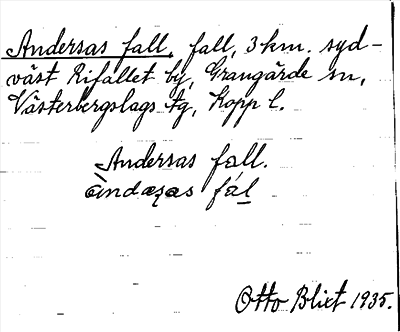 Andersas fall, fall, 3 km. syd-
väst Rifallet by, Grangärde sn,
Västerbergslags tg, Kopp l.
Andersas fall.
Otto Blixt 1935.